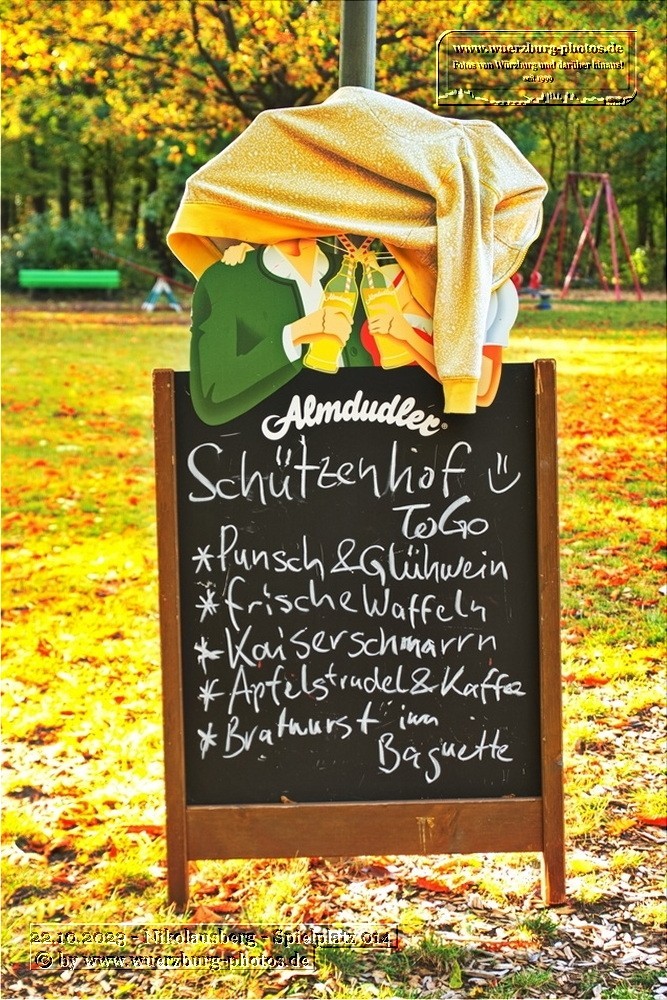 www.wuerzburg-photos.de
Fotos von Würzburg und darüber hinaus!
seit 1999
Almdudler®
Schützenhof
ToGo
* Punsch & Glühwein
* frische Waffeln
* Kaiserschmarrn
* Apfelstrudel & Kaffee
* Bratwurst im
Baguette
22.10.2023 - Nikolausberg - Spielplatz 014
© by www.wuerzburg-photos.de